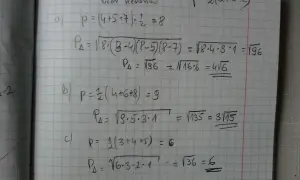 a) p = (4+5+7)·½ = 8
P△ = √8·(8-4)(8-5)(8-7) = √8·4·3·1 = √96
P△ = √96 = √16·6 = 4√6
b) p = ½(4+6+8) = 9
P△ = √9·5·3·1 = √135 = 3√15
c) p = ½(3+4+5) = 6
P△ = √6·3·2·1 = √36 = 6